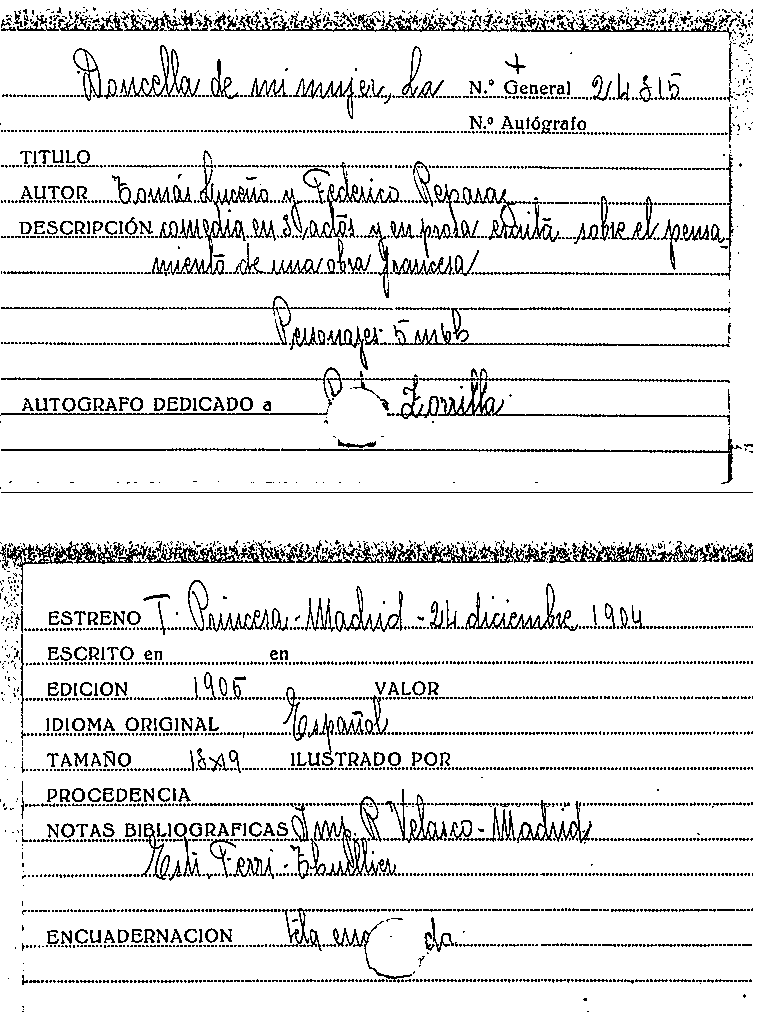 Doncella de mi mujer, La N.º General 24815
N.º Autógrafo
TITULO
AUTOR Tomás Luceño y Federico Reparaz
DESCRIPCIÓN comedia en 3 actos y en prosa escrita sobre el pensa-
miento de una obra francesa
Personajes 5 m 6 h
AUTOGRAFO DEDICADO a Zorrilla
ESTRENO T. Princesa - Madrid - 24 diciembre 1904
ESCRITO en en
EDICION 1905 VALOR
IDIOMA ORIGINAL Español
TAMAÑO 13x19 ILUSTRADO POR
PROCEDENCIA
NOTAS BIBLIOGRAFICAS Imp. R Velasco - Madrid
Esti. Ferri - Thuillier
ENCUADERNACION tela da